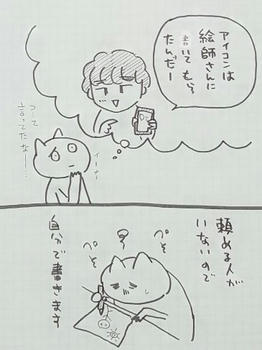 アイコンは
絵師さんに
書いてもらっ
たんだー
いーなー
って
言ってたなー…
頼める人が
いないので
ぺそ
ぺそ
自分で書きます